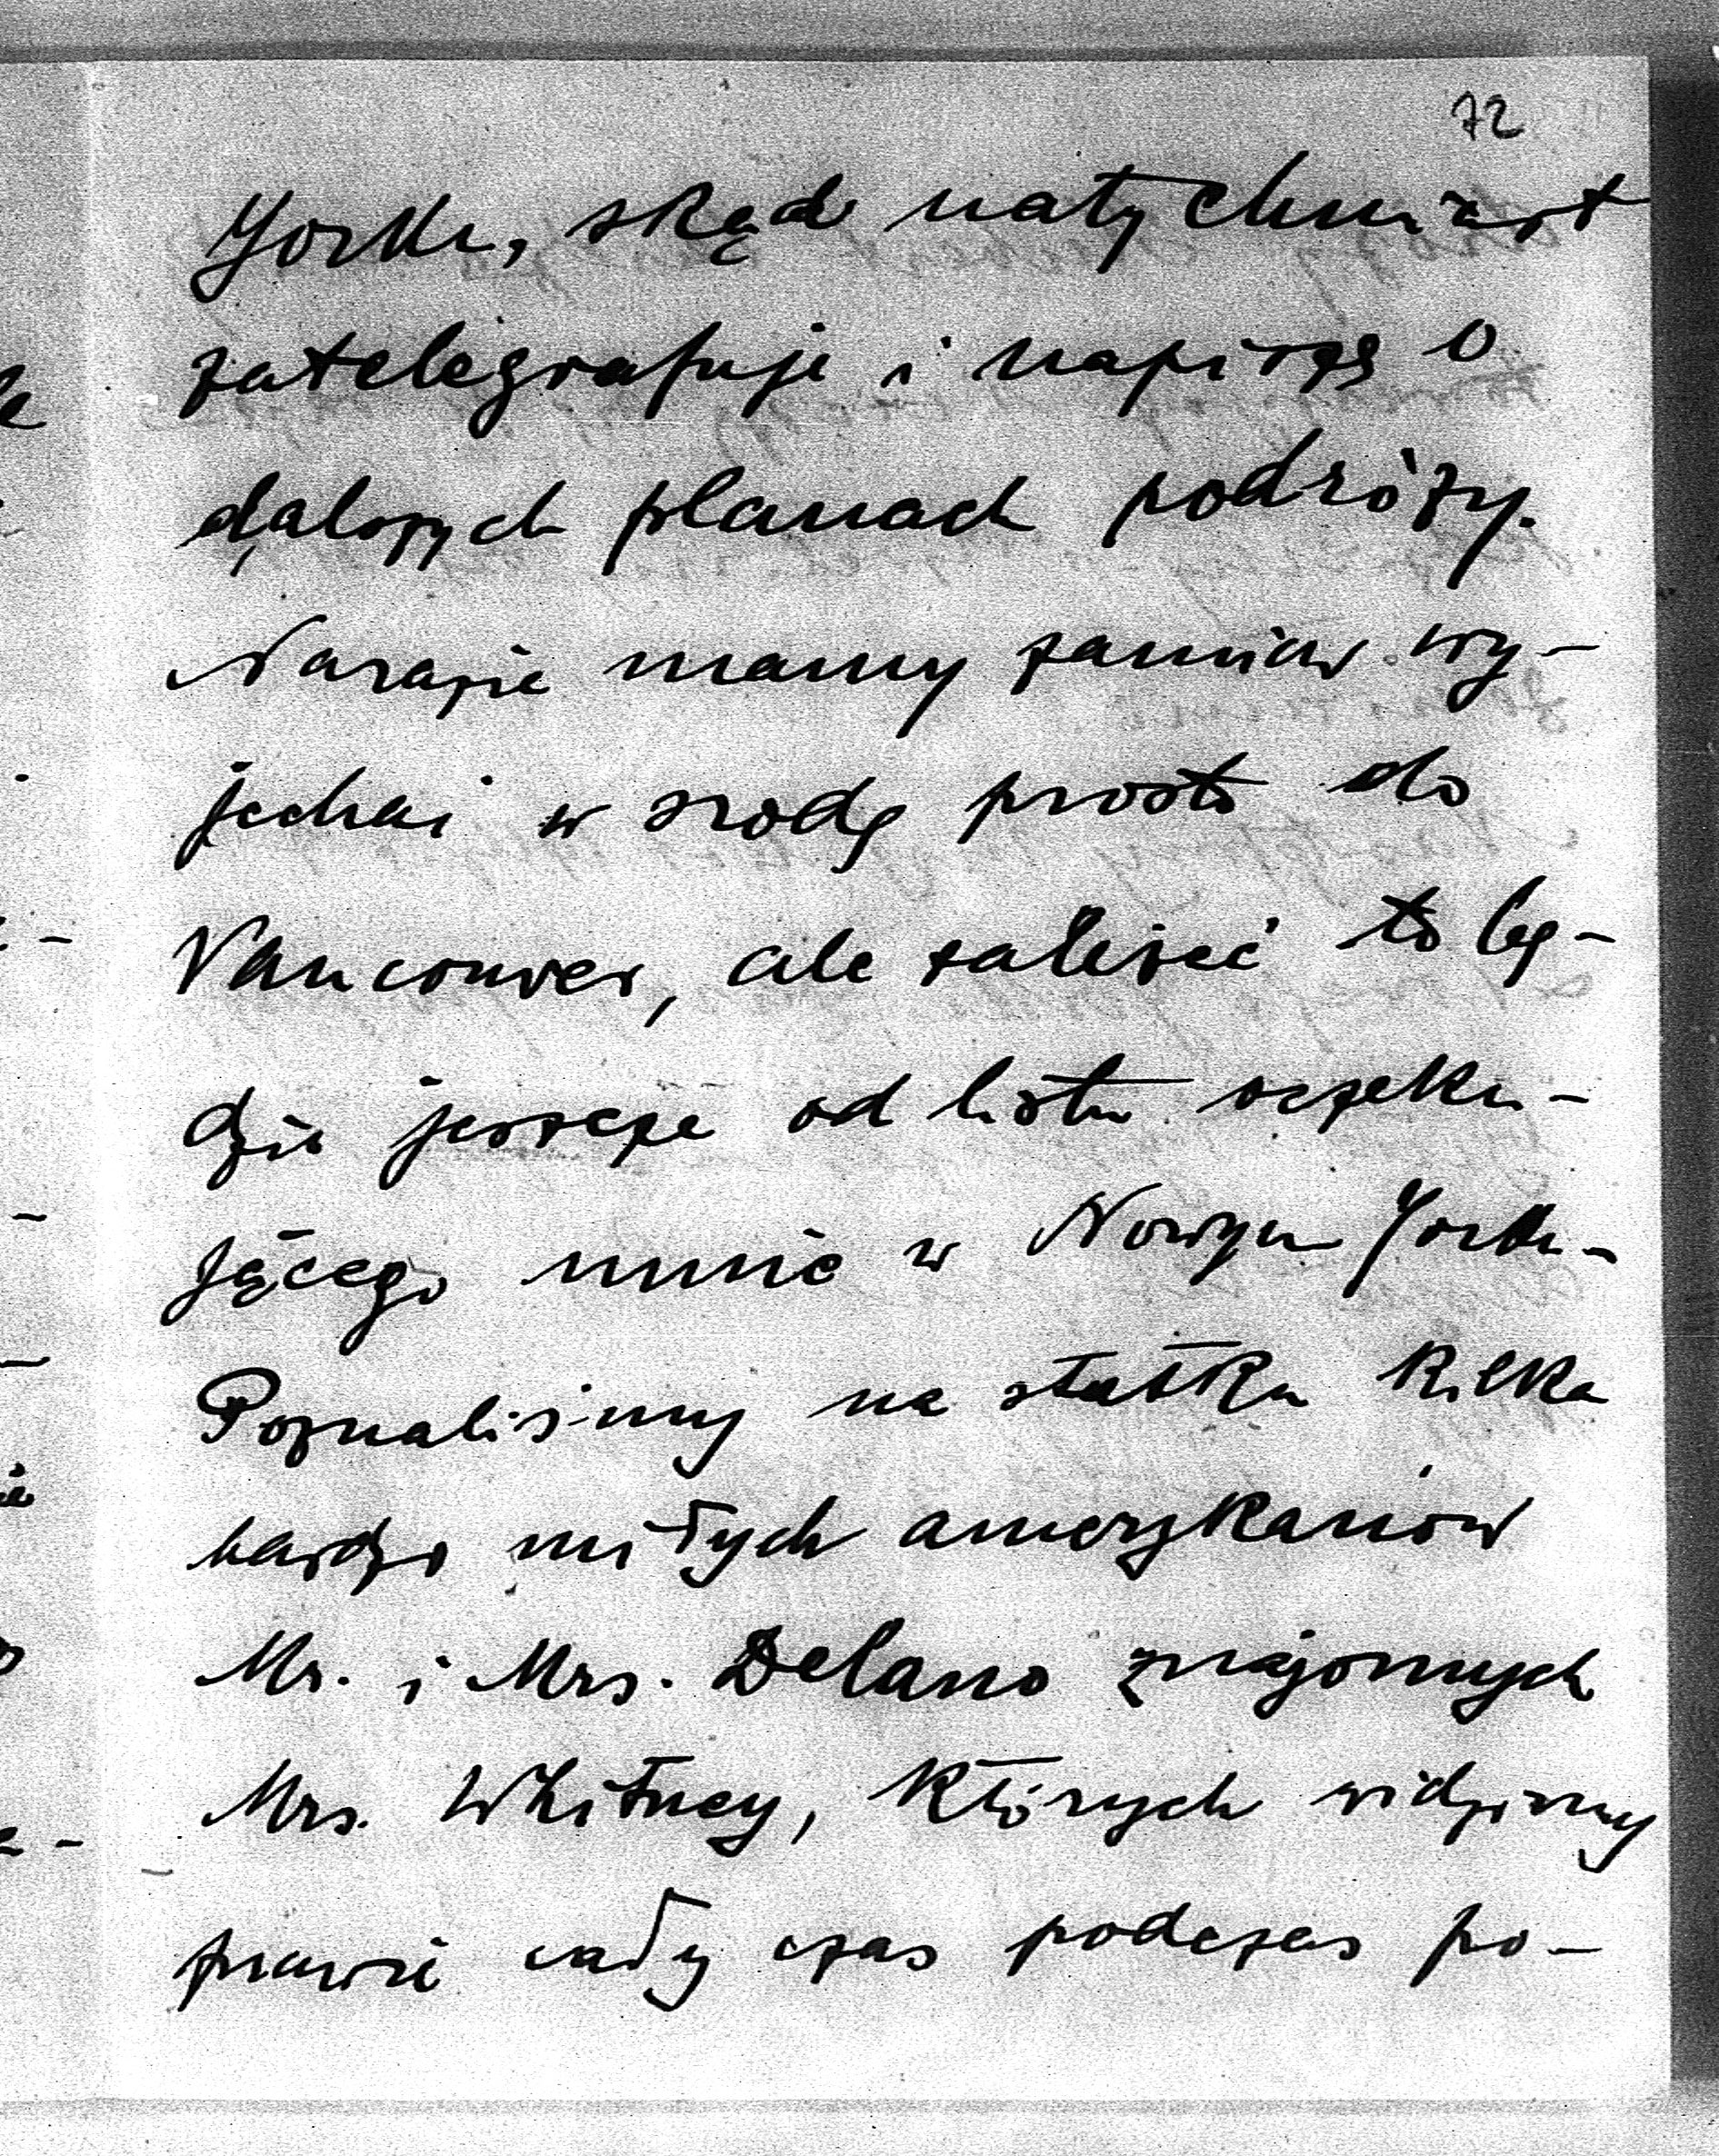 72
Yorku, skąd natychmiast
zatelegrafuje i napiszę o
dalszych planach podróży.
Narazie mamy zamiar wy-
jechai w srodę prosto do
Vancouver, ale zależeć to bę-
dzie jeszcze od listu oczeku-
jącego mnie w Nowym Yorku-
Poznaliśmy na statku kilka
bardzo miłych amerykanów
Mr. i Mrs. Delano znajomych
Mrs. Whitney, których widzimy
prawie cały czas podczas po-